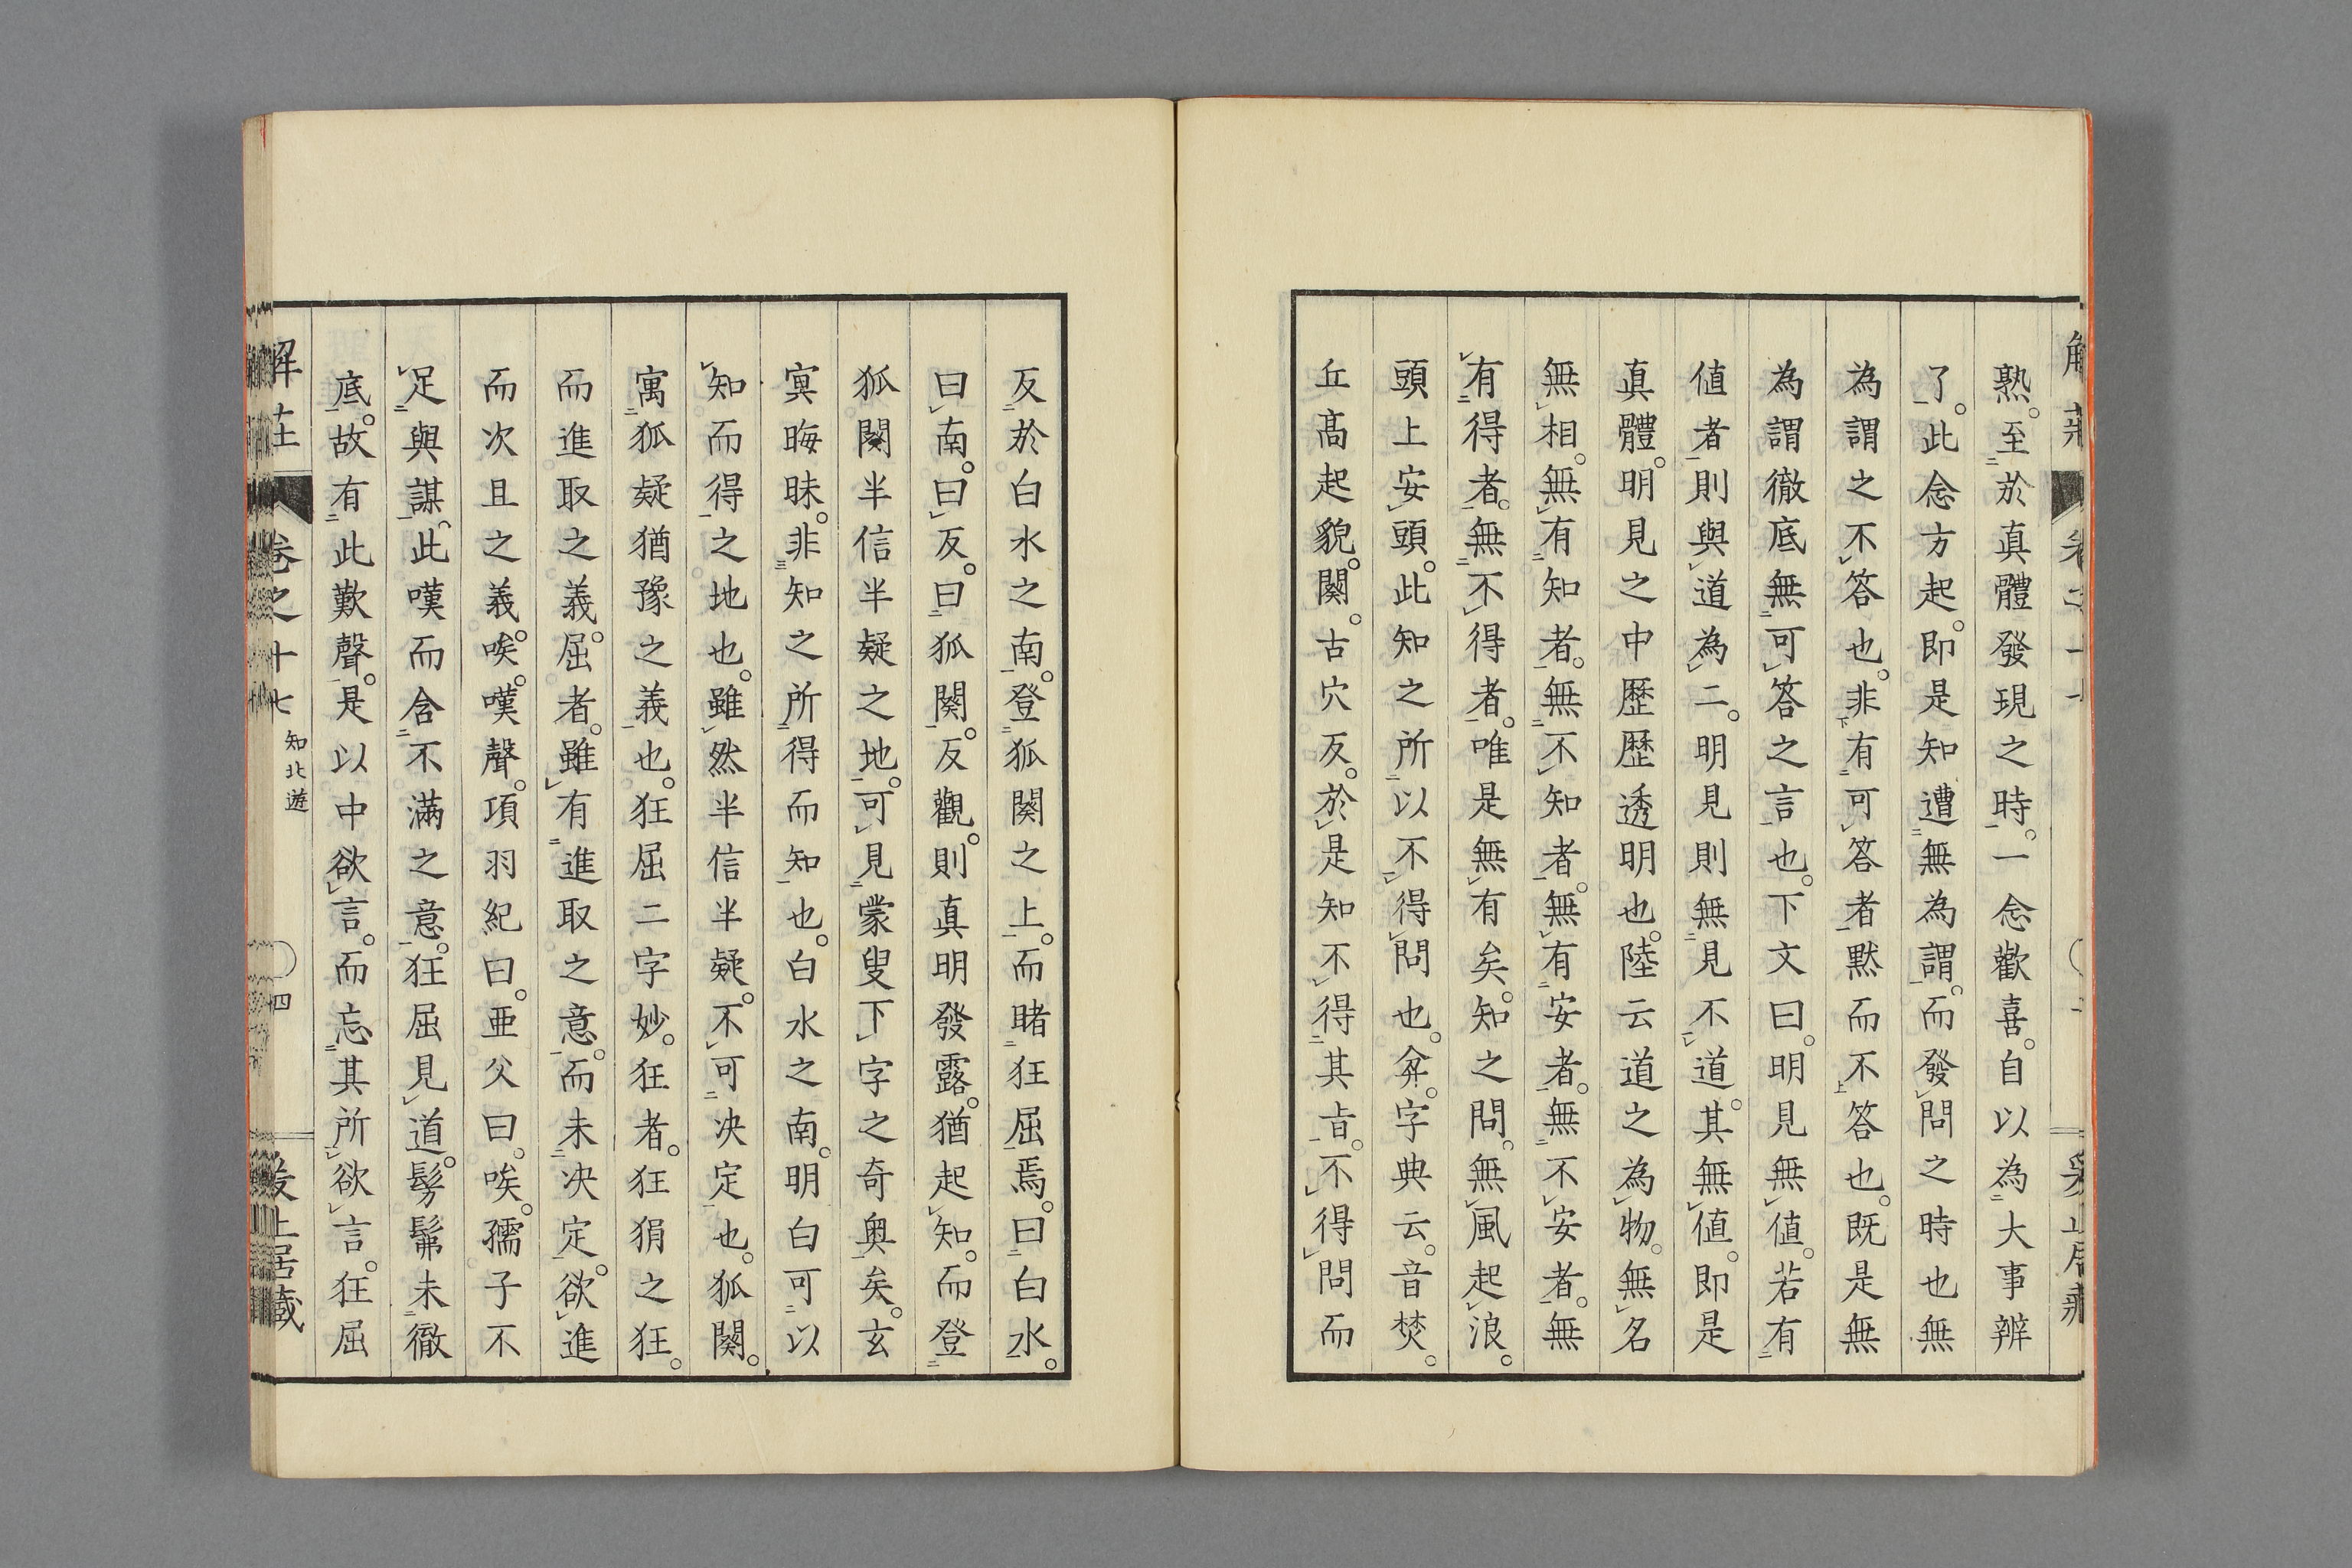 熟。至於真體發現之時。一念歡喜。自以為大事辨
了。此念方起。即是知遭無為謂。而發問之時也無
為謂之不答也。非有可答者黙而不答也。既是無
為謂徹底無可答之言也。下文曰。明見無値。若有
値者則與道為二。明見則無見不道。其無値。即是
真體。明見之中歷歷透明也。陸云道之為物。無名
無相。無有知者。無不知者。無有安者。無不安者。無
有得者。無不得者。唯是無有矣。知之問。無風起浪。
頭上安頭。此知之所以不得問也。弅。字典云。音焚。
丘高起貌。闋。古穴反。於是知不得其㫖。不得問而
反於白水之南。登狐闋之上。而睹狂屈焉。曰白水。
曰南。曰反。曰狐闋。反觀。則真明發露。猶起知。而登
狐闋半信半疑之地。可見蒙叟下字之奇奥矣。玄
㝠晦昧。非知之所得而知也。白水之南。明白可以
知而得之地也。雖然半信半疑。不可决定也。狐闋。
寓狐疑猶豫之義也。狂屈二字妙。狂者。狂狷之狂。
而進取之義。屈者。雖有進取之意。而未决定。欲進
而次且之義。唉。嘆聲。項羽紀曰。亜父曰。唉。孺子不
足與謀。此嘆而含不滿之意。狂屈見道。髣髴未徹
底。故有此歎聲。是以中欲言。而忘其所欲言。狂屈
卷之十七 知北遊 四